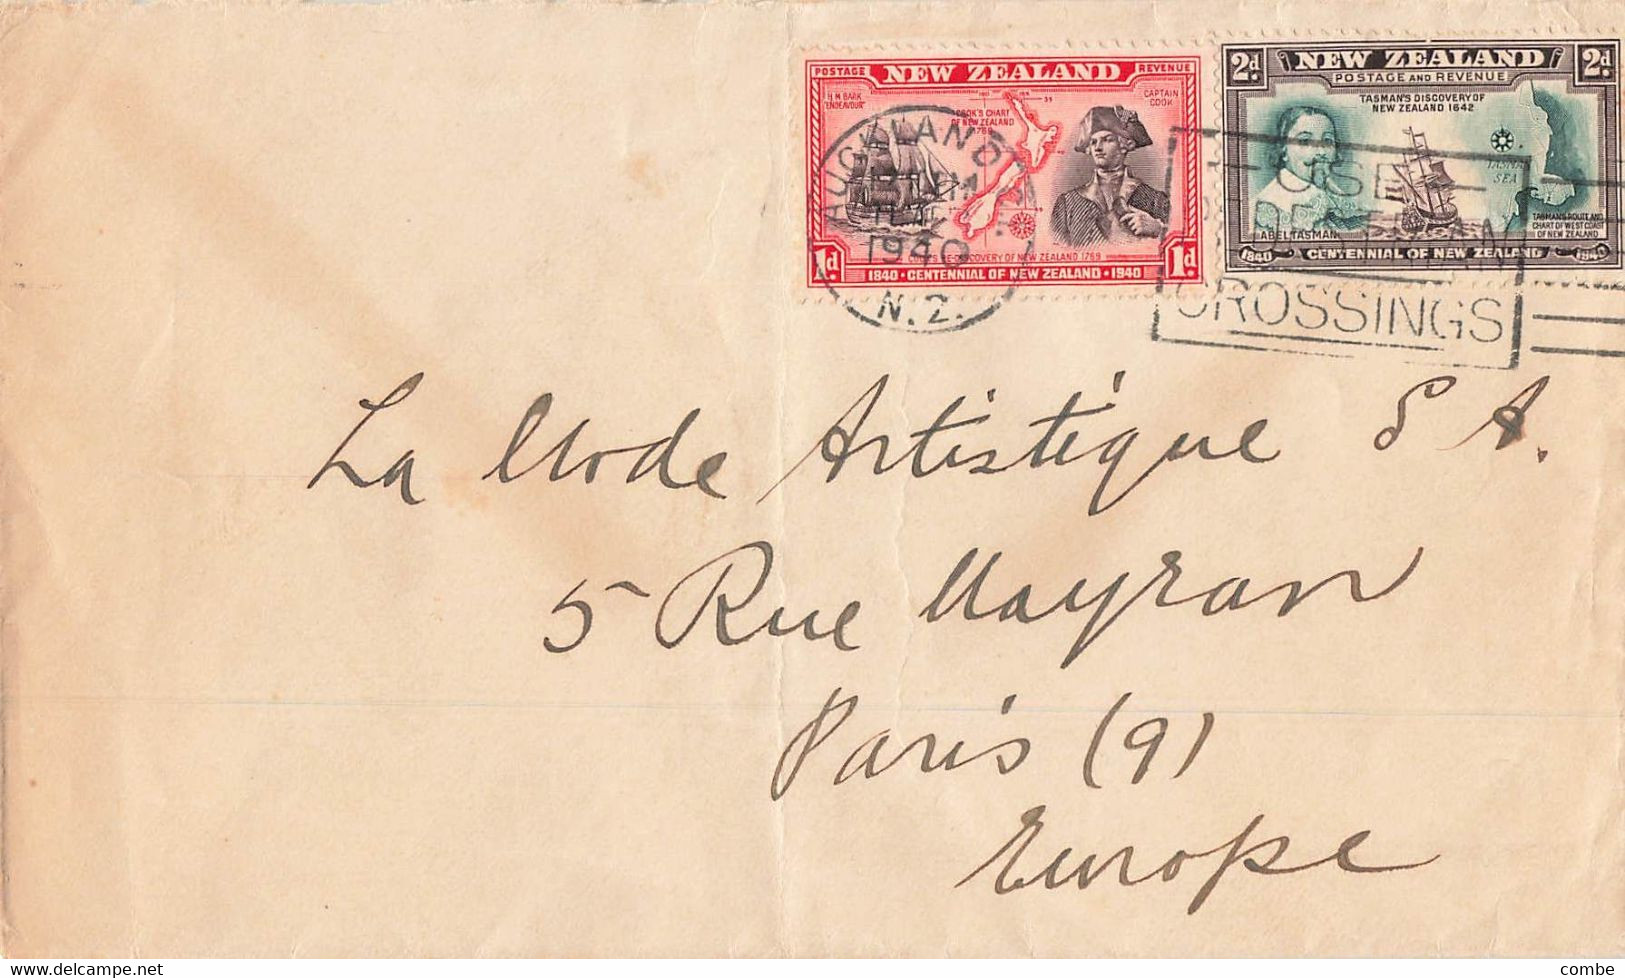 POSTAGE NEW ZEALAND REVENUE
H.M. BARK
"ENDEAVOUR"
COOK'S CHART
OF NEW ZEALAND
1769
CAPTAIN
COOK
1d 1d
1840 · CENTENNIAL OF NEW ZEALAND · 1940
2d NEW ZEALAND 2d
POSTAGE AND REVENUE
TASMAN'S DISCOVERY OF
NEW ZEALAND 1642
TASMAN
SEA
ABEL TASMAN
TASMAN'S ROUTE AND
CHART OF WEST COAST
OF NEW ZEALAND
1840 CENTENNIAL OF NEW ZEALAND 1940
AUCKLAND
1940
N.Z.
USE
PEDESTRIAN
CROSSINGS
La Mode Artistique S A.
5 Rue Mayran
Paris (9)
Europe
delcampe.net
combe